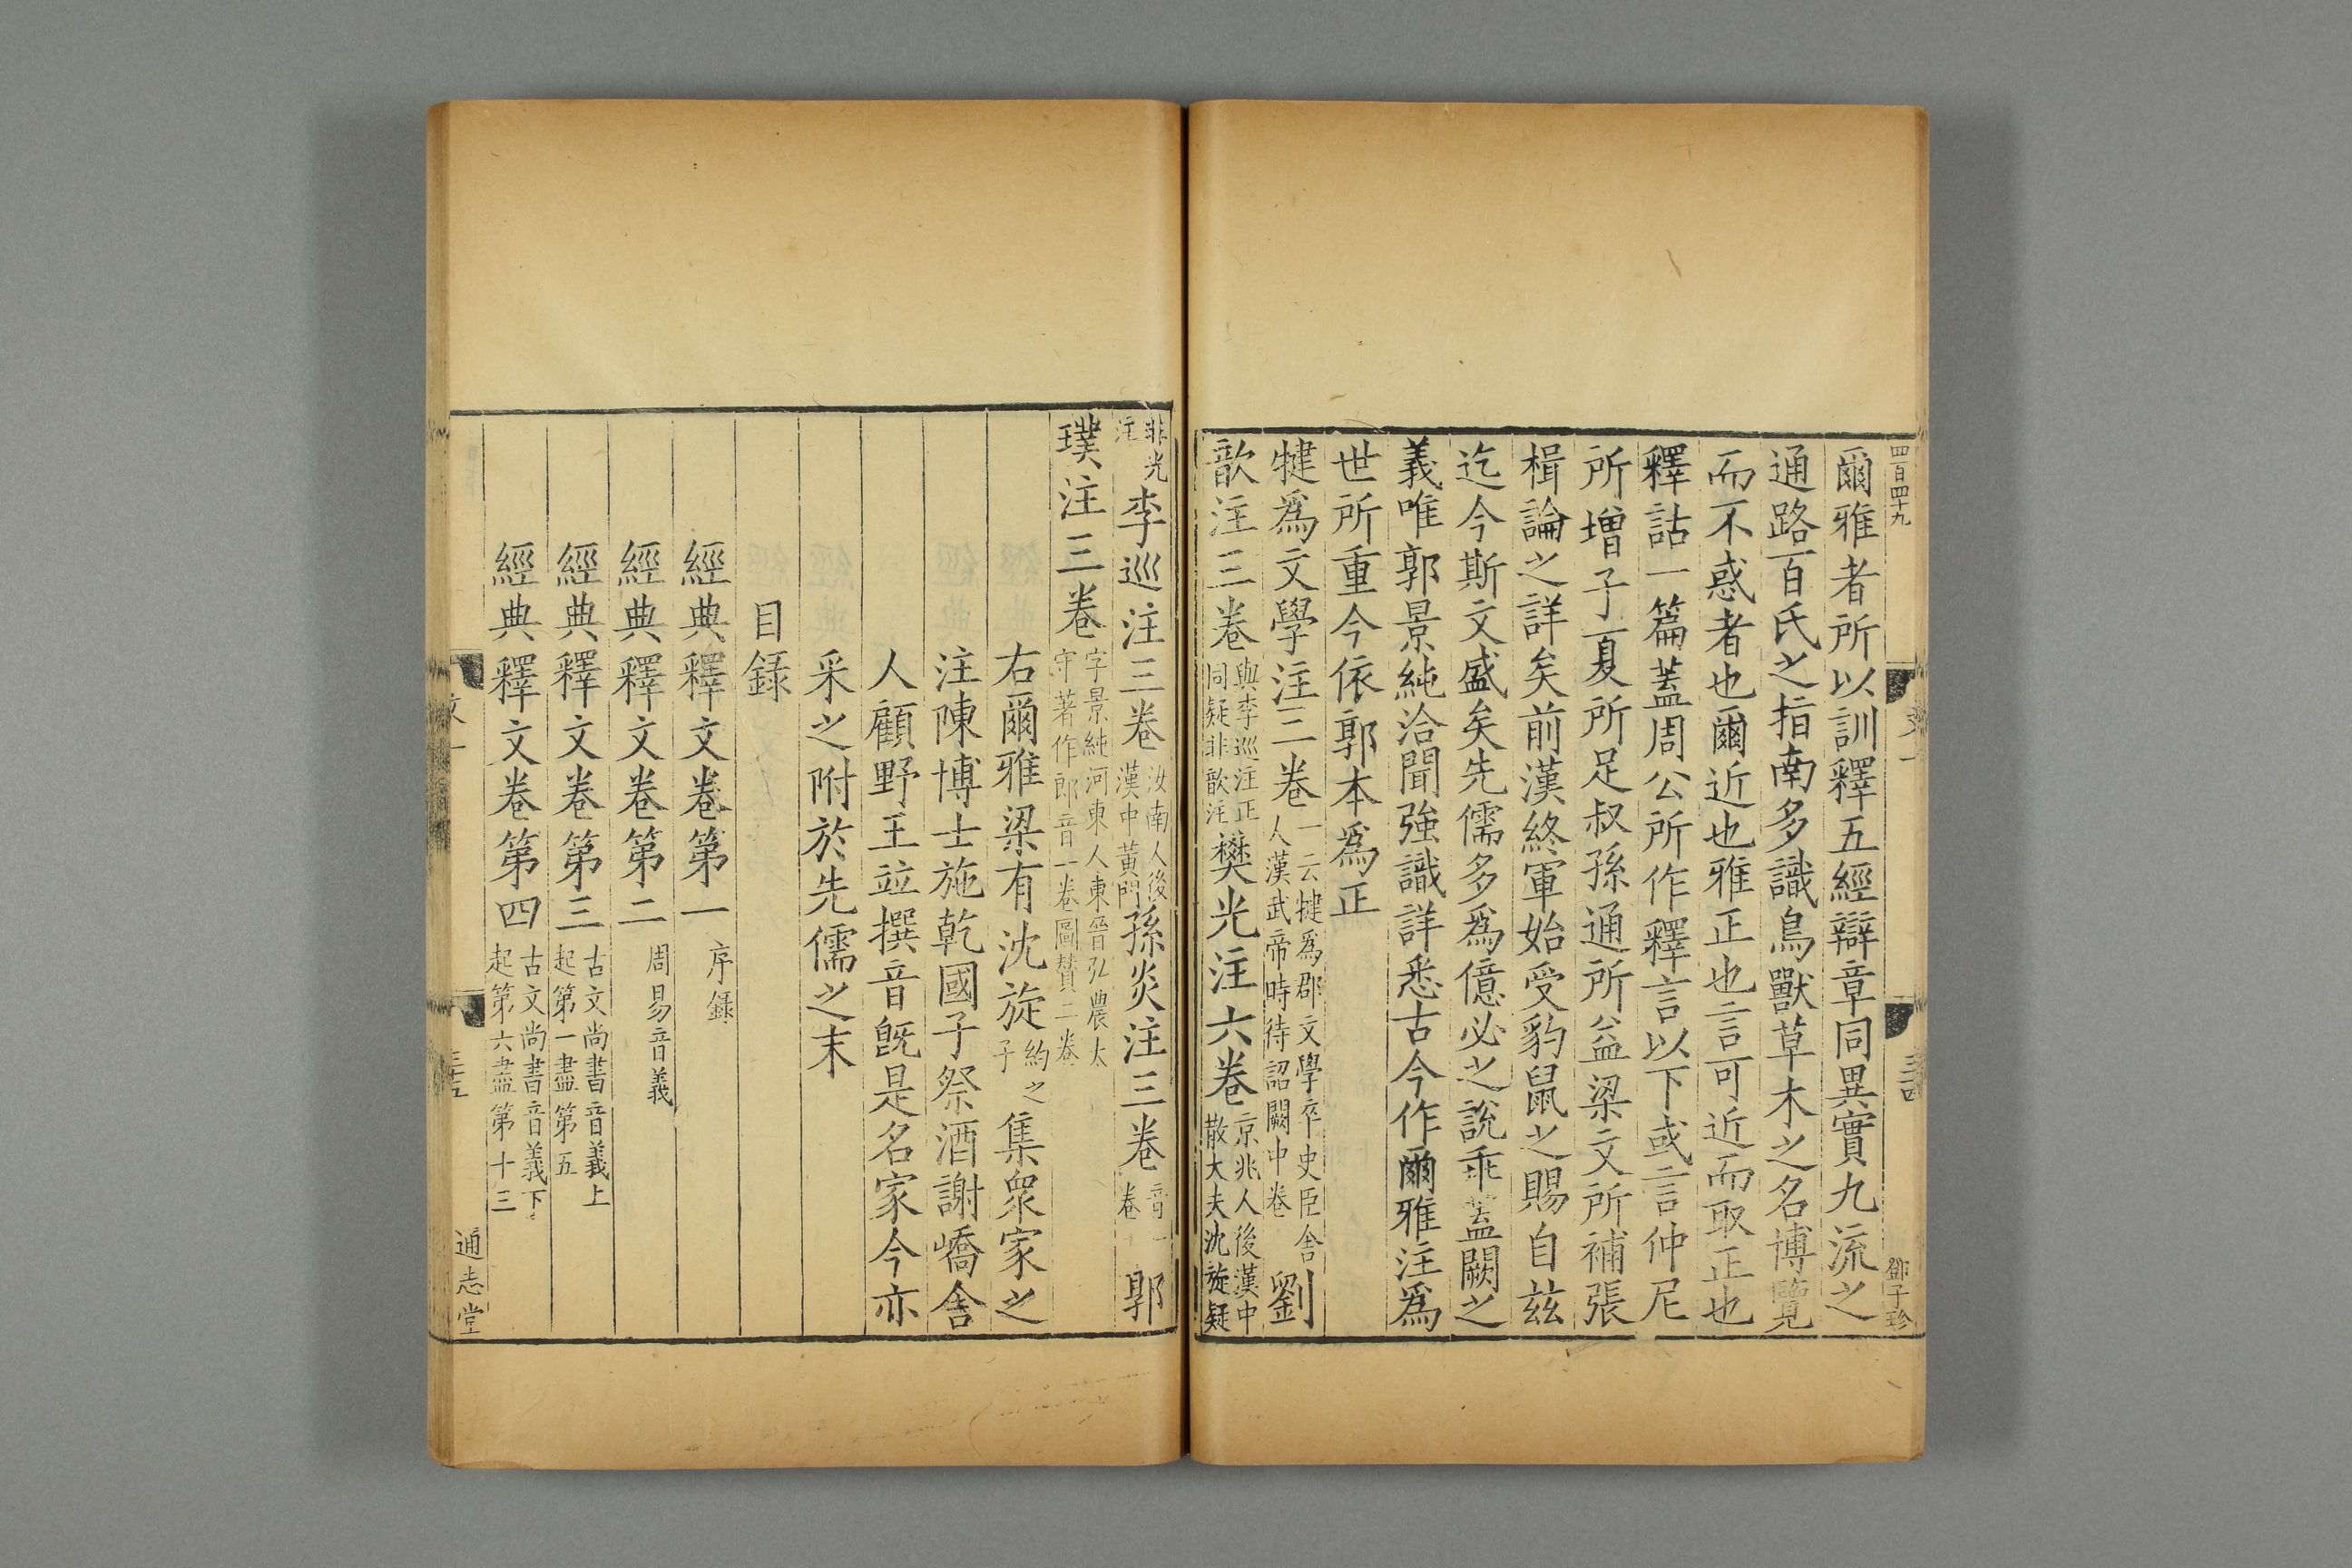 四百四十九
鄧子珍
爾雅者所以訓釋五經辯章同異實九流之
通路百氏之指南多識鳥獸草木之名博覽
而不惑者也爾近也雅正也言可近而取正也
釋詁一篇蓋周公所作釋言以下或言仲尼
所增子夏所足叔孫通所益梁文所補張
楫論之詳矣前漢終軍始受豹鼠之賜自茲
迄今斯文盛矣先儒多爲億必之說乖蓋闕之
義唯郭景純洽聞強識詳悉古今作爾雅注爲
世所重今依郭本爲正
犍爲文學注三卷一云犍爲郡文學卒史臣舍人漢武帝時待詔闕中卷劉
歆注三卷與李巡注正同疑非歆注樊光注六卷京兆人後漢中散大夫沈旋疑
非光注李巡注三卷汝南人後漢中黃門孫炎注三卷音一卷郭
璞注三卷字景純河東人東晉弘農太守著作郎音一卷圖贊二卷
右爾雅梁有沈旋約之子集衆家之
注陳博士施乾國子祭酒謝嶠舍
人顧野王竝撰音旣是名家今亦
采之附於先儒之末
目録
經典釋文卷第一序録
經典釋文卷第二周易音義
經典釋文卷第三古文尚書音義上起第一盡第五
經典釋文卷第四古文尚書音義下起第六盡第十三
通志堂